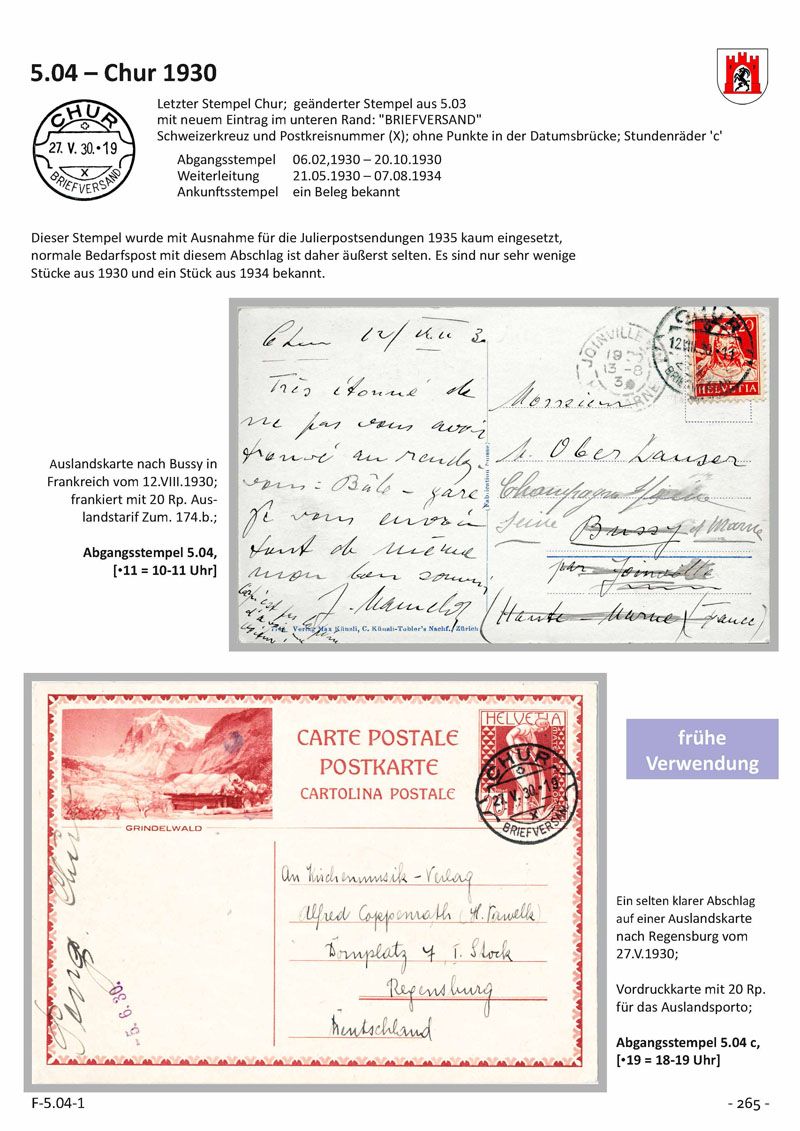 5.04 – Chur 1930
CHUR
27. V. 30.•19
X
BRIEFVERSAND
Letzter Stempel Chur;  geänderter Stempel aus 5.03
mit neuem Eintrag im unteren Rand: "BRIEFVERSAND"
Schweizerkreuz und Postkreisnummer (X); ohne Punkte in der Datumsbrücke; Stundenräder 'c'
Abgangsstempel 06.02,1930 – 20.10.1930
Weiterleitung 21.05.1930 – 07.08.1934
Ankunftsstempel ein Beleg bekannt
Dieser Stempel wurde mit Ausnahme für die Julierpostsendungen 1935 kaum eingesetzt,
normale Bedarfspost mit diesem Abschlag ist daher äußerst selten. Es sind nur sehr wenige
Stücke aus 1930 und ein Stück aus 1934 bekannt.
Auslandskarte nach Bussy in
Frankreich vom 12.VIII.1930;
frankiert mit 20 Rp. Aus-
landstarif Zum. 174.b.;
Abgangsstempel 5.04,
[•11 = 10-11 Uhr]
Chur 12/VIII 3
Très étonné de
ne pas vous avoir
trouvé au rendez
vous: Bâle – gare
Je vous envoie
tout de même
mon bon
JOINVILLE
13 -8
30
MARNE
CHUR
12.VIII.30.-11
20
HELVETIA
Monsieur
Ober
Champagne
Seine et Marne
Bussy
par Joinville
(Haute-Marne) (France)
Verlag Max Künzli, C. Künzli-Tobler's Nachf., Zürich
CARTE POSTALE
POSTKARTE
CARTOLINA POSTALE
HELVETIA
20
CHUR
27. V. 30.•19
X
BRIEFVERSAN
GRINDELWALD
An Kirchenmusik-Verlag
Alfred Coppenrath (H. Pawelk)
Domplatz 7 I. Stock
Regensburg
Deutschland
Chur
-5.6.30.
frühe
Verwendung
Ein selten klarer Abschlag
auf einer Auslandskarte
nach Regensburg vom
27.V.1930;
Vordruckkarte mit 20 Rp.
für das Auslandsporto;
Abgangsstempel 5.04 c,
[•19 = 18-19 Uhr]
F-5.04-1
- 265 -